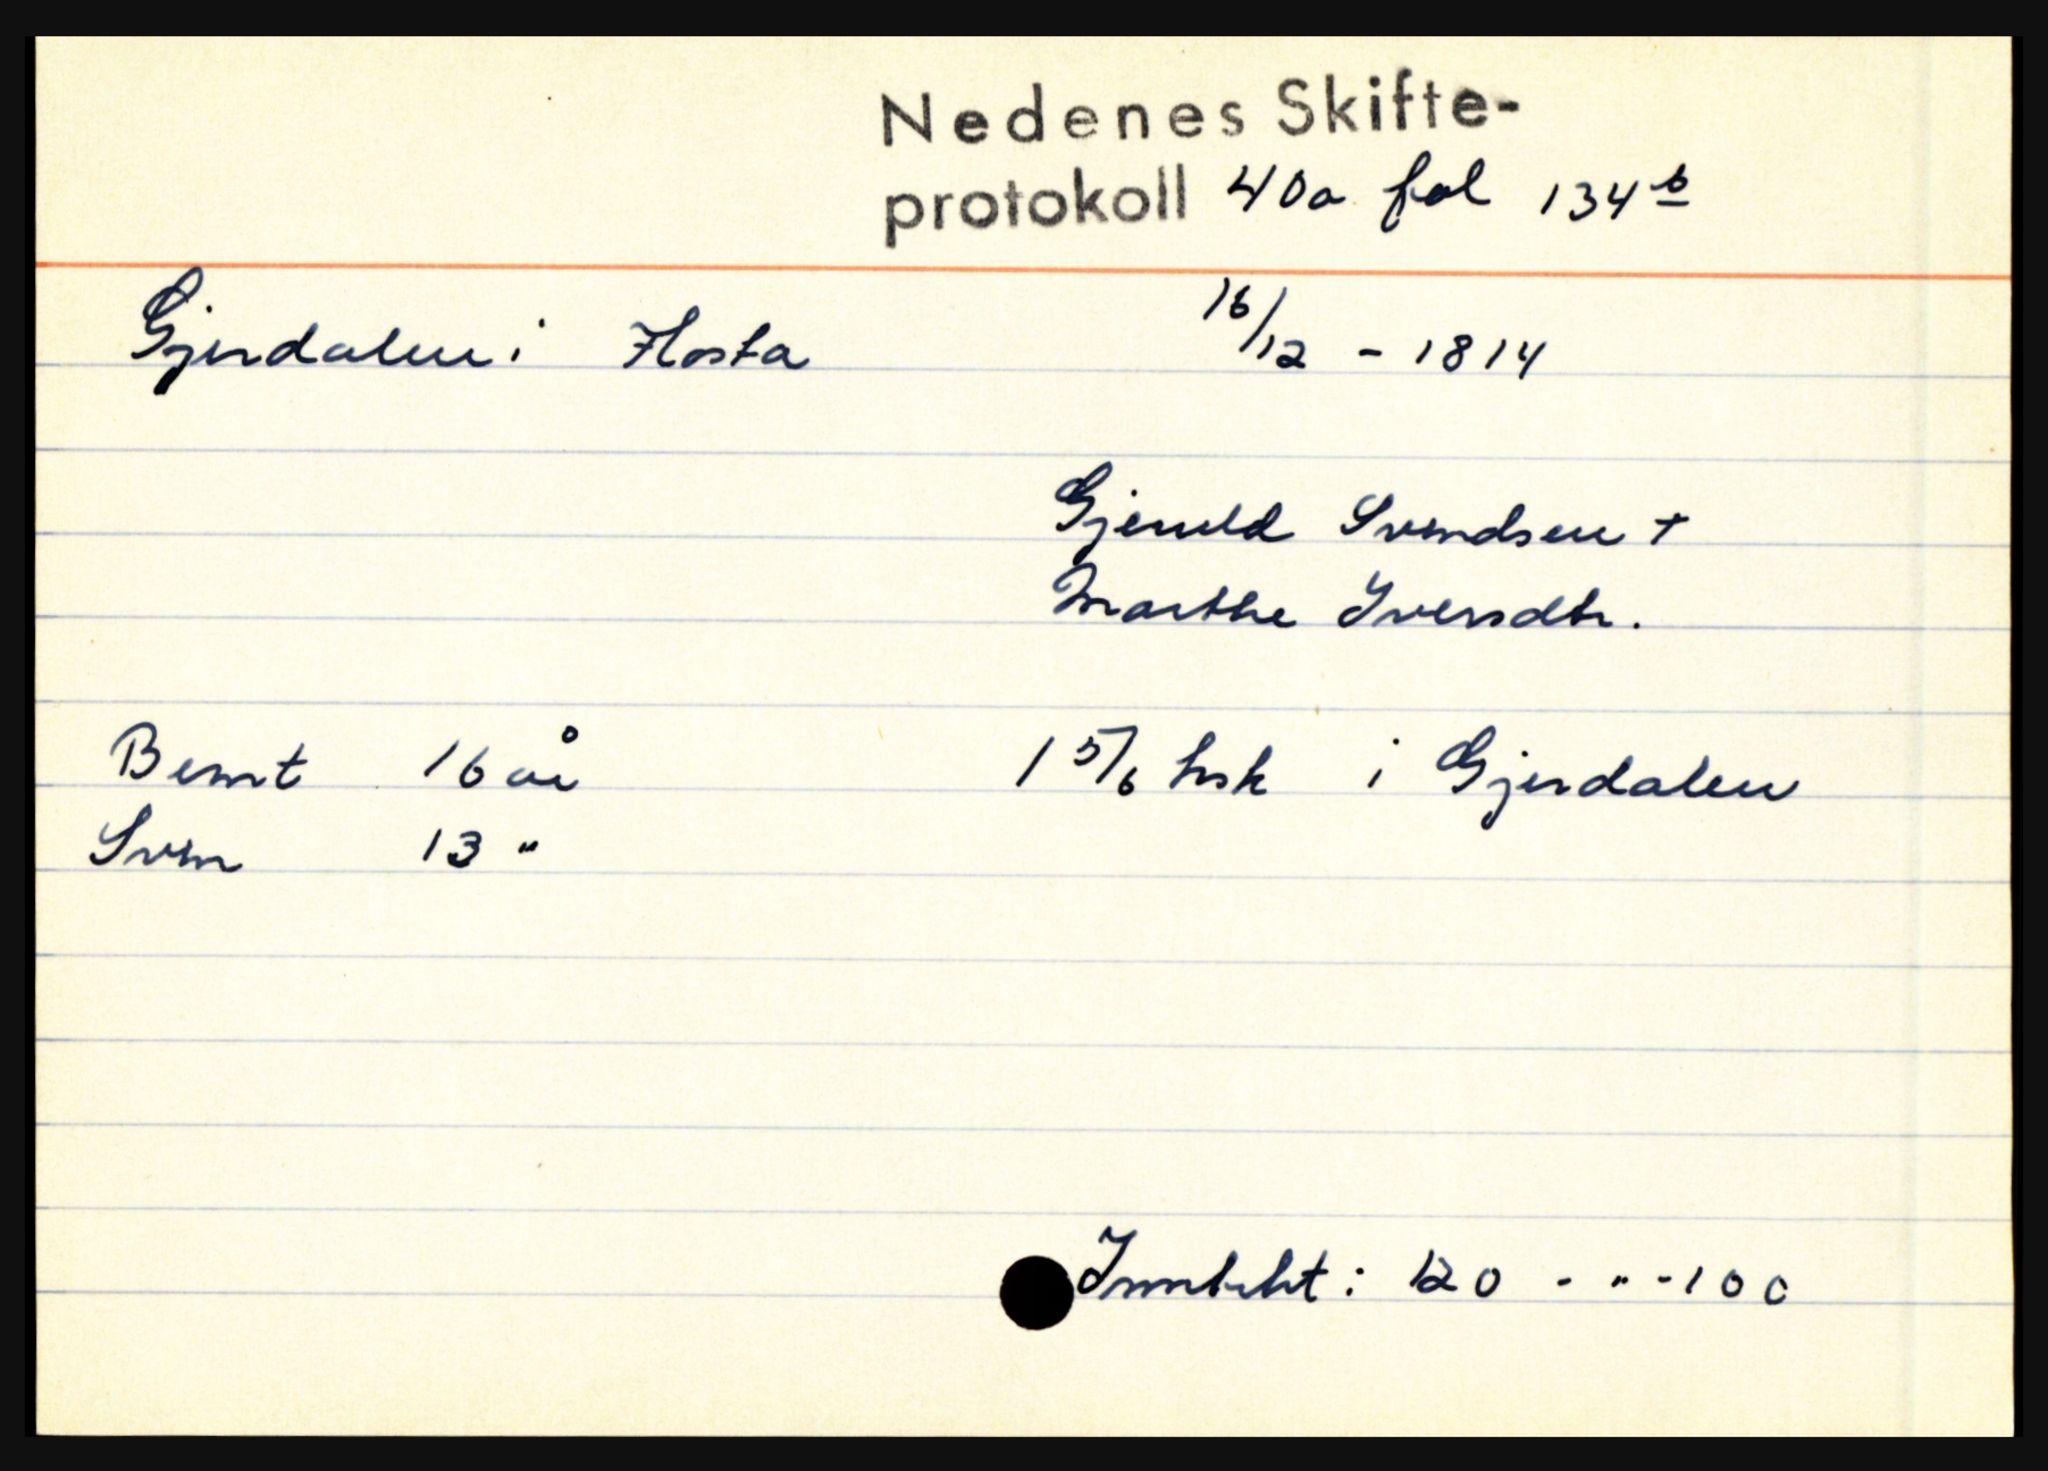 Nedenes Skifte-
protokoll 40a fol 134 b
Gjerdalen i Flosta 16/12 - 1814
Gjeruld Svendsen +
Marthe Iversdtr.
Bernt 16 år 1 5/6 hsk i Gjerdalen
Sven 13 "
Inntekt: 120 - " - 100